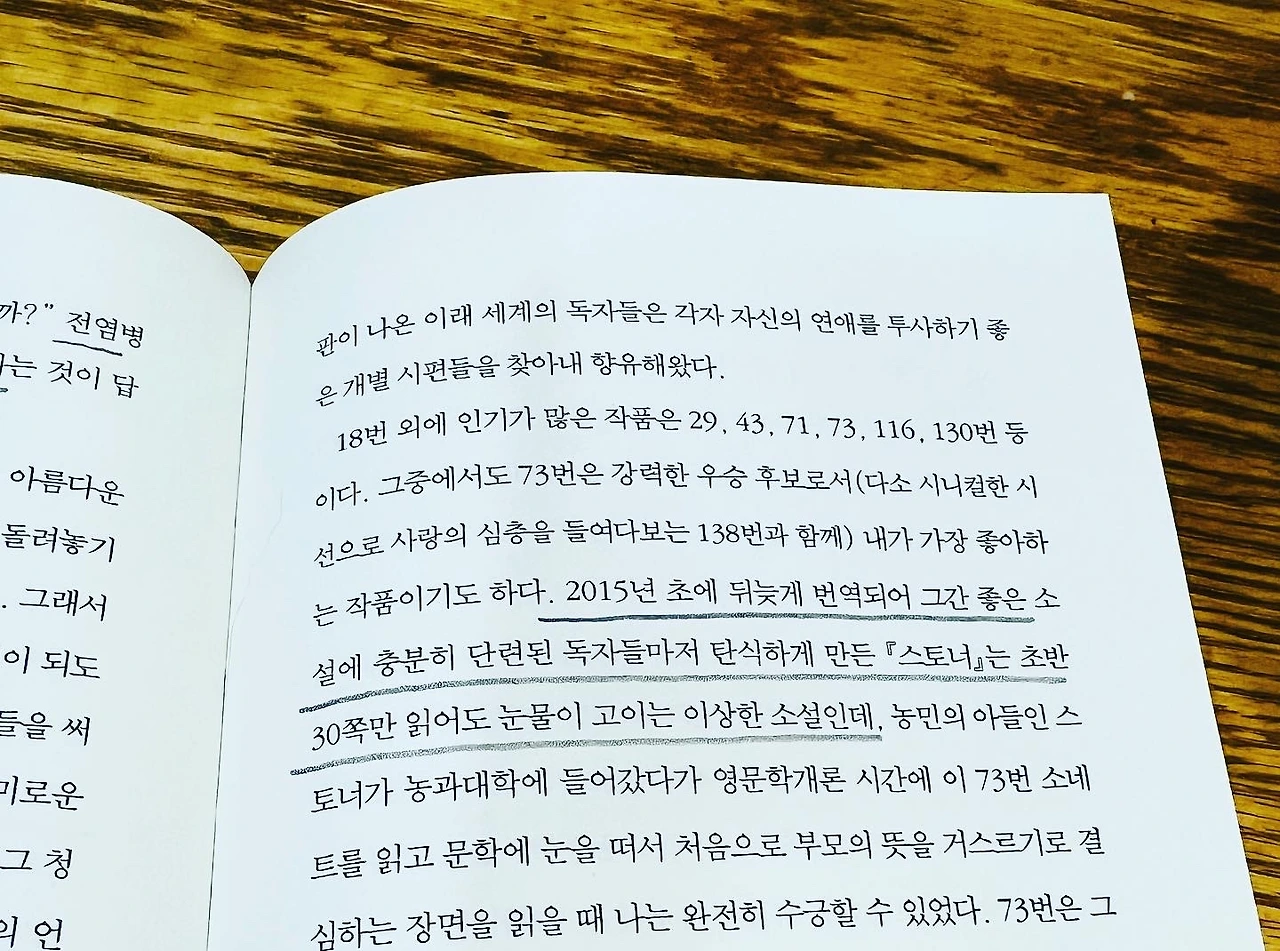 까?” 전염병
는 것이 답
아름다운
돌려놓기
. 그래서
이 되도
들을 써
미로운
그 청
의 언
판이 나온 이래 세계의 독자들은 각자 자신의 연애를 투사하기 좋
은 개별 시편들을 찾아내 향유해왔다.
18번 외에 인기가 많은 작품은 29, 43, 71, 73, 116, 130번 등
이다. 그중에서도 73번은 강력한 우승 후보로서(다소 시니컬한 시
선으로 사랑의 심층을 들여다보는 138번과 함께) 내가 가장 좋아하
는 작품이기도 하다. 2015년 초에 뒤늦게 번역되어 그간 좋은 소
설에 충분히 단련된 독자들마저 탄식하게 만든 『스토너』는 초반
30쪽만 읽어도 눈물이 고이는 이상한 소설인데, 농민의 아들인 스
토너가 농과대학에 들어갔다가 영문학개론 시간에 이 73번 소네
트를 읽고 문학에 눈을 떠서 처음으로 부모의 뜻을 거스르기로 결
심하는 장면을 읽을 때 나는 완전히 수긍할 수 있었다. 73번은 그